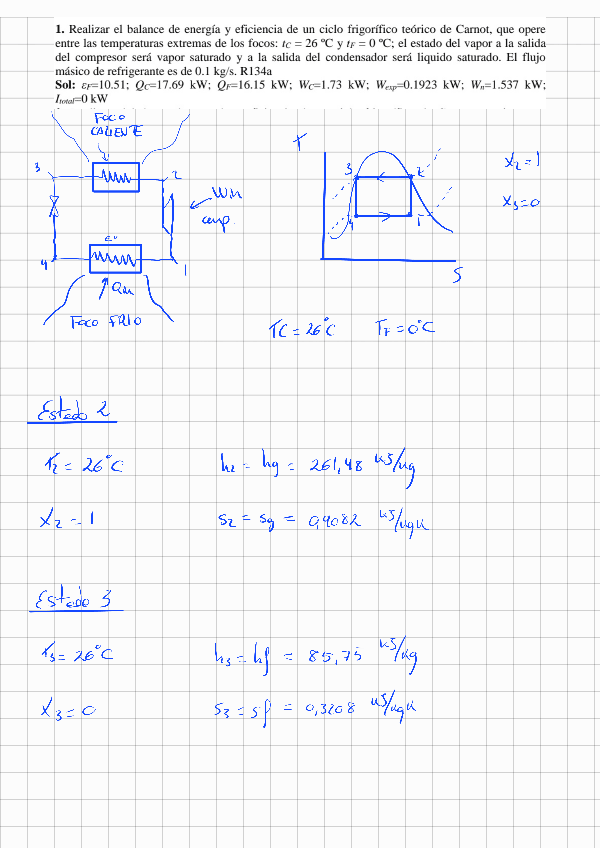 1. Realizar el balance de energía y eficiencia de un ciclo frigorífico teórico de Carnot, que opere
entre las temperaturas extremas de los focos: tC = 26 ºC y tF = 0 ºC; el estado del vapor a la salida
del compresor será vapor saturado y a la salida del condensador será liquido saturado. El flujo
másico de refrigerante es de 0.1 kg/s. R134a
Sol: εF=10.51; QC=17.69 kW; QF=16.15 kW; WC=1.73 kW; Wexp=0.1923 kW; Wn=1.537 kW;
Itotal=0 kW
FOCO
CALIENTE
3
2
Win
comp.
4
1
Qin
FOCO FRIO
T
3
2
4
1
S
x2=1
x3=0
TC = 26°C
TF = 0°C
Estado 2
T2 = 26°C
h2 = hg = 261,48 kJ/kg
x2 = 1
s2 = sg = 0,9082 kJ/kgK
Estado 3
T3 = 26°C
h3 = hf = 85,75 kJ/kg
x3 = 0
s3 = sf = 0,3208 kJ/kgK